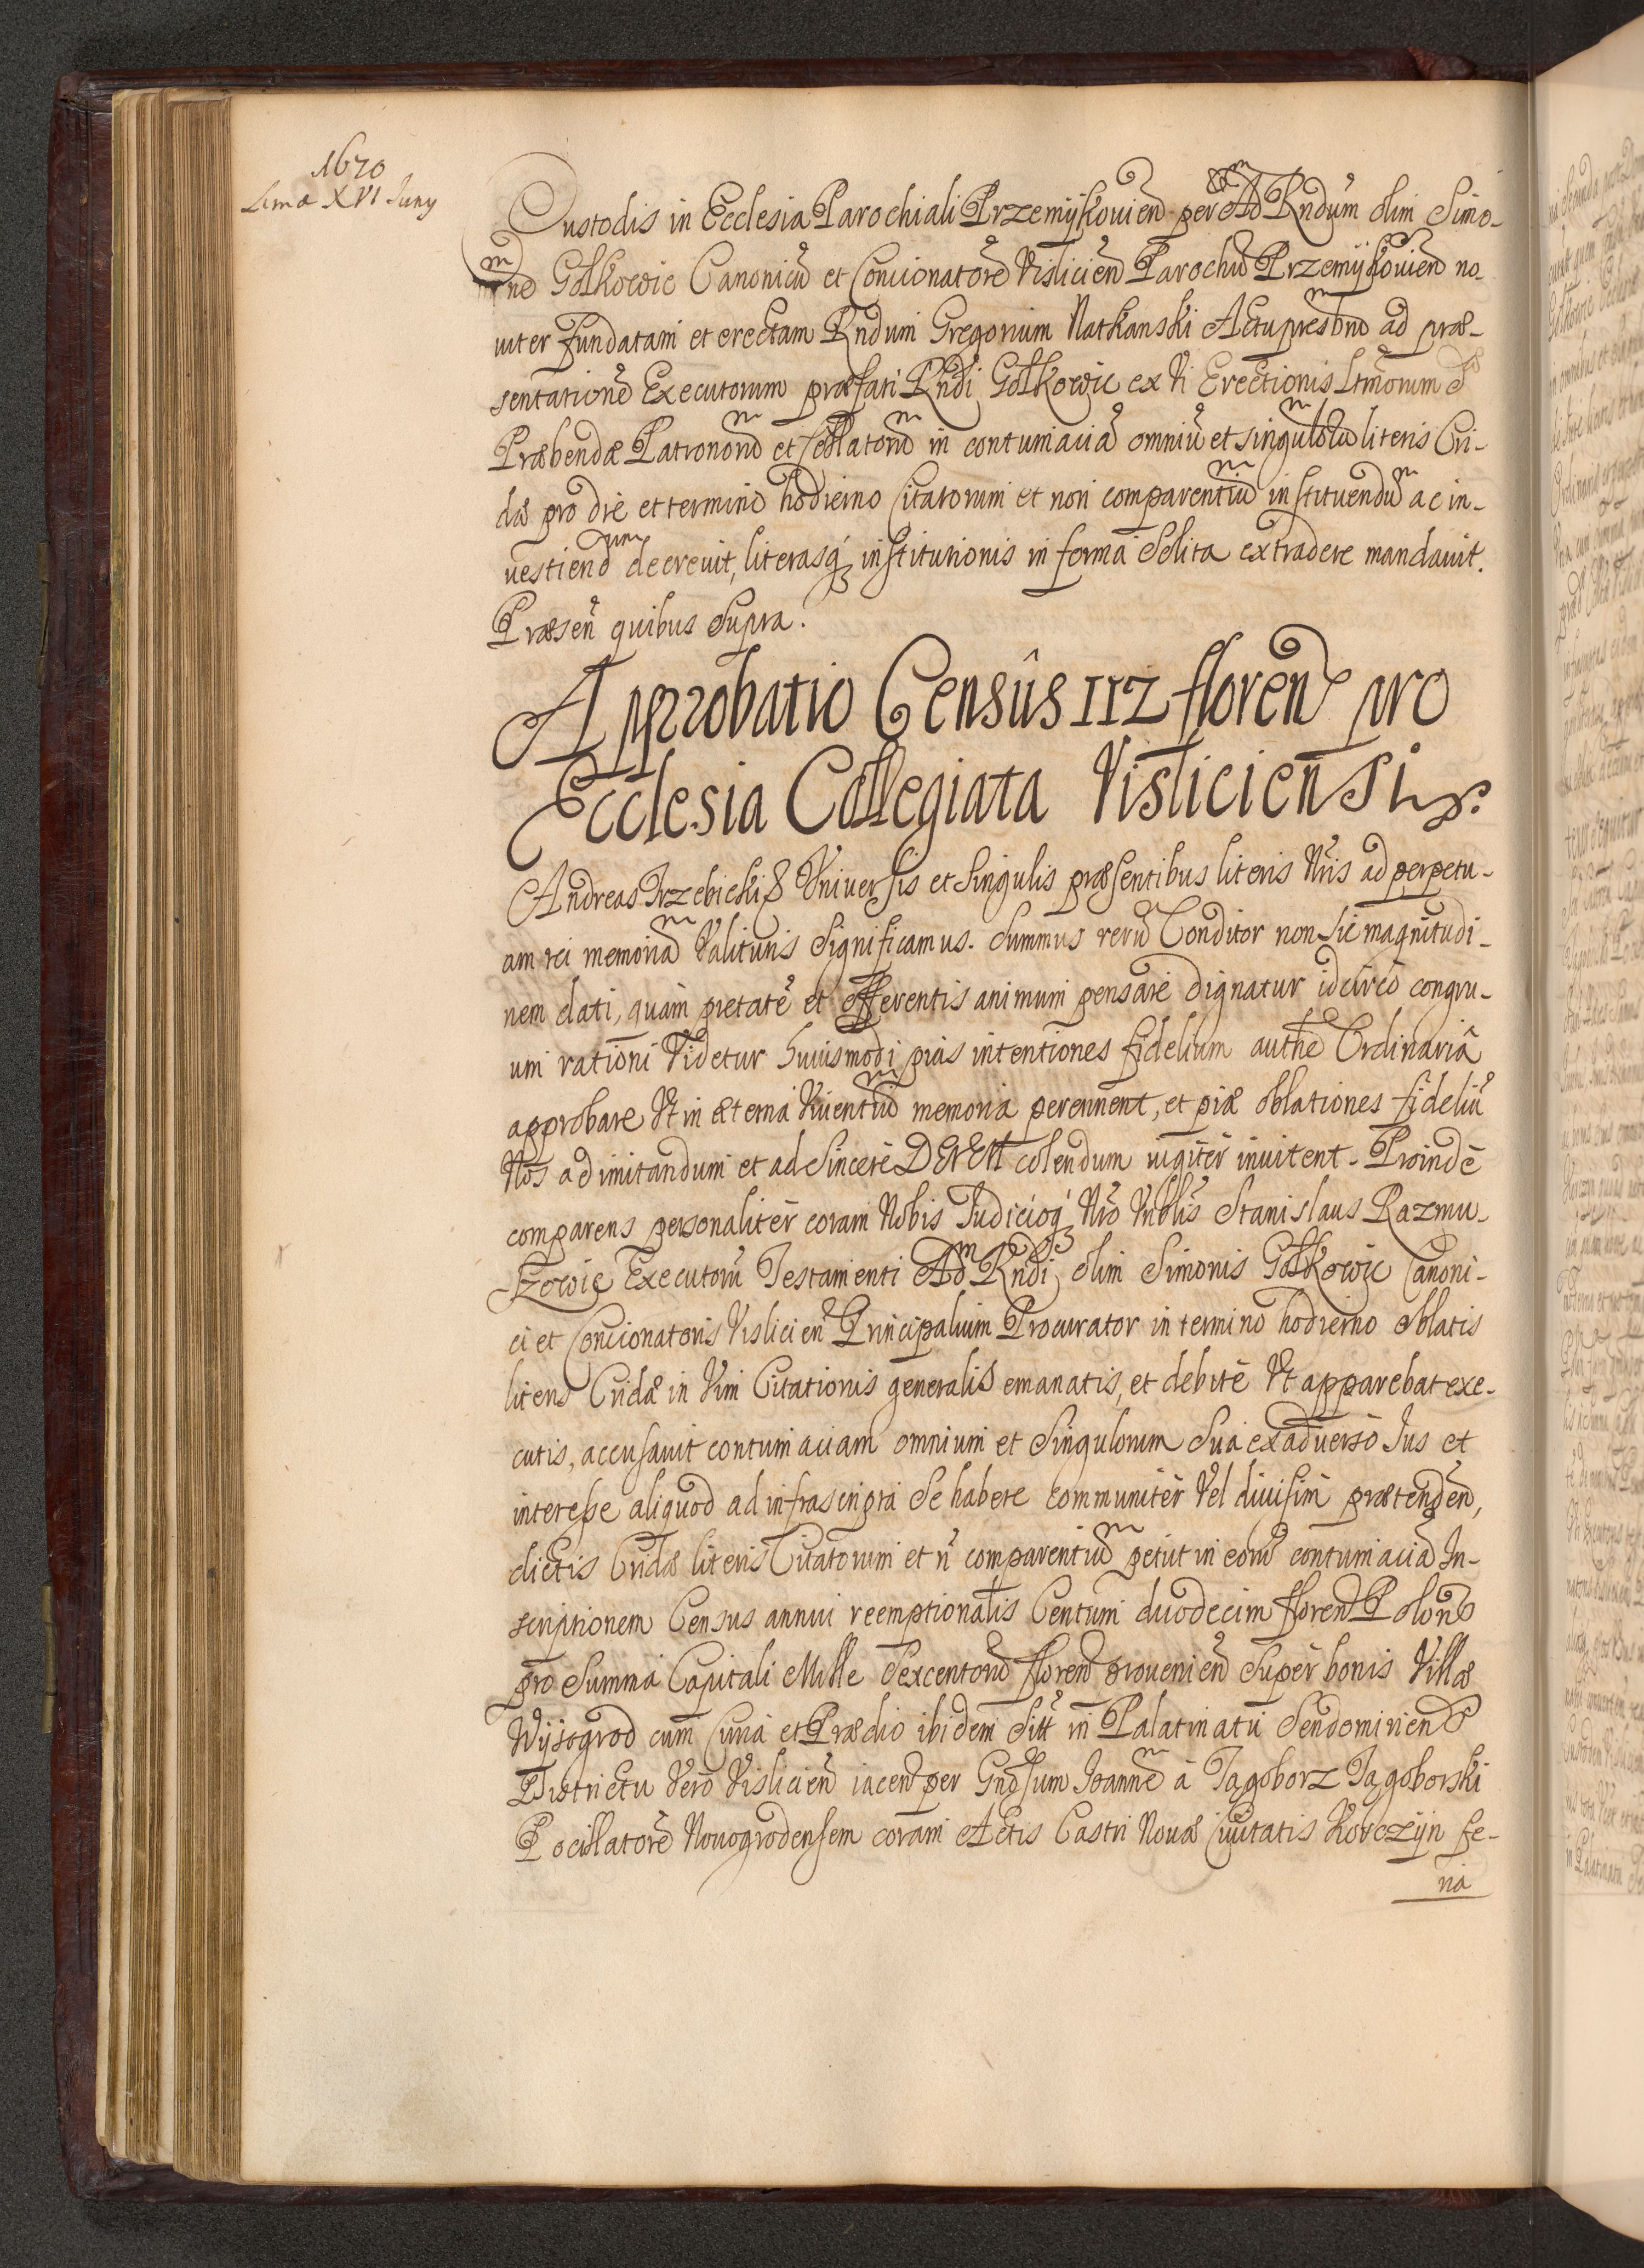 1670
Luna XVI Iuny
Custodis in Ecclesia Parochiali Przemÿkouien̄ per Adm Rndum olim Simo-
nem Gołkowic Canonicū et Concionatorē Visliciēn Parochū Przemÿkouien̄ no-
uiter fundatam et erectam Rndum Gregorium Natkanski Actu presbrm ad præ-
sentationē Executorum præfati Rndi Gołkowic ex Vi Erectionis Ltmorum d
Præbendæ Patronorū et Collatorū in contumaciā omniū et singulorū literis Cri-
dæ pro die et termino hodierno Citatorum et non comparentiū instituendū ac in-
uestiendum decreuit, literasq́ institutionis in forma solita extradere mandauit.
Præsen̄ quibus supra.
Approbatio Censûs 112 floren̄ pro
Ecclesia Collegiata Visliciensi
Andreas Trzebicki & Vniuersis et Singulis præsentibus literis Nris ad perpetu-
am rei memoriam Valituris Significamus. Summus rerū Conditor non sic magnitudi-
nem dati, quàm pietatē et offerentis animum pensare dignatur idcircò congru-
um rationi Videtur huiusmodi pias intentiones fidelium authe Ordinariâ
approbare Vt in æterna Viuentiū memoria perennent, et piæ oblationes fideliū
Nos ad imitandum et ad sincerè DEUM colendum iugitèr inuitent. Proindè
comparens personalitèr coram Nobis Iudicioq́ Nrō Vnblis Stanislaus Razmu-
zowic Executorū Testamenti Adm Rndi olim Simonis Gołkowic Canoni-
ci et Concionatoris Vislicien̄ Principalium Procurator in termino hodierno oblatis
literis Cridæ in Vim Citationis generalis emanatis, et debitè Vt apparebat exe-
cutis, accusauit contumaciam omnium et Singulorum Sua ex aduerso Ius et
interesse aliquod ad infrascripta Se habere communitèr Vel diuisim prætenden̄,
dictis Cridæ literis Citatorum et n̄ comparentiū petijt in eorū contumaciā In-
scriptionem Census annui reemptionalis Centum duodecim floren̄ Polon̄
pro Summa Capitali Mille Sexcentorū floren̄ prouenien̄ Super bonis Villæ
Wÿsogrod cum Curia et Prædio ibidem Sitt in Palatinatu Sendomirien̄
Districtu Verò Vislicien̄ iacen̄ per Gnosum Ioannem à Jagoborz Jagoborski
Pocillatorē Nouogrodensem coram Actis Castri Nouæ Ciuitatis Korczÿn fe-
ria